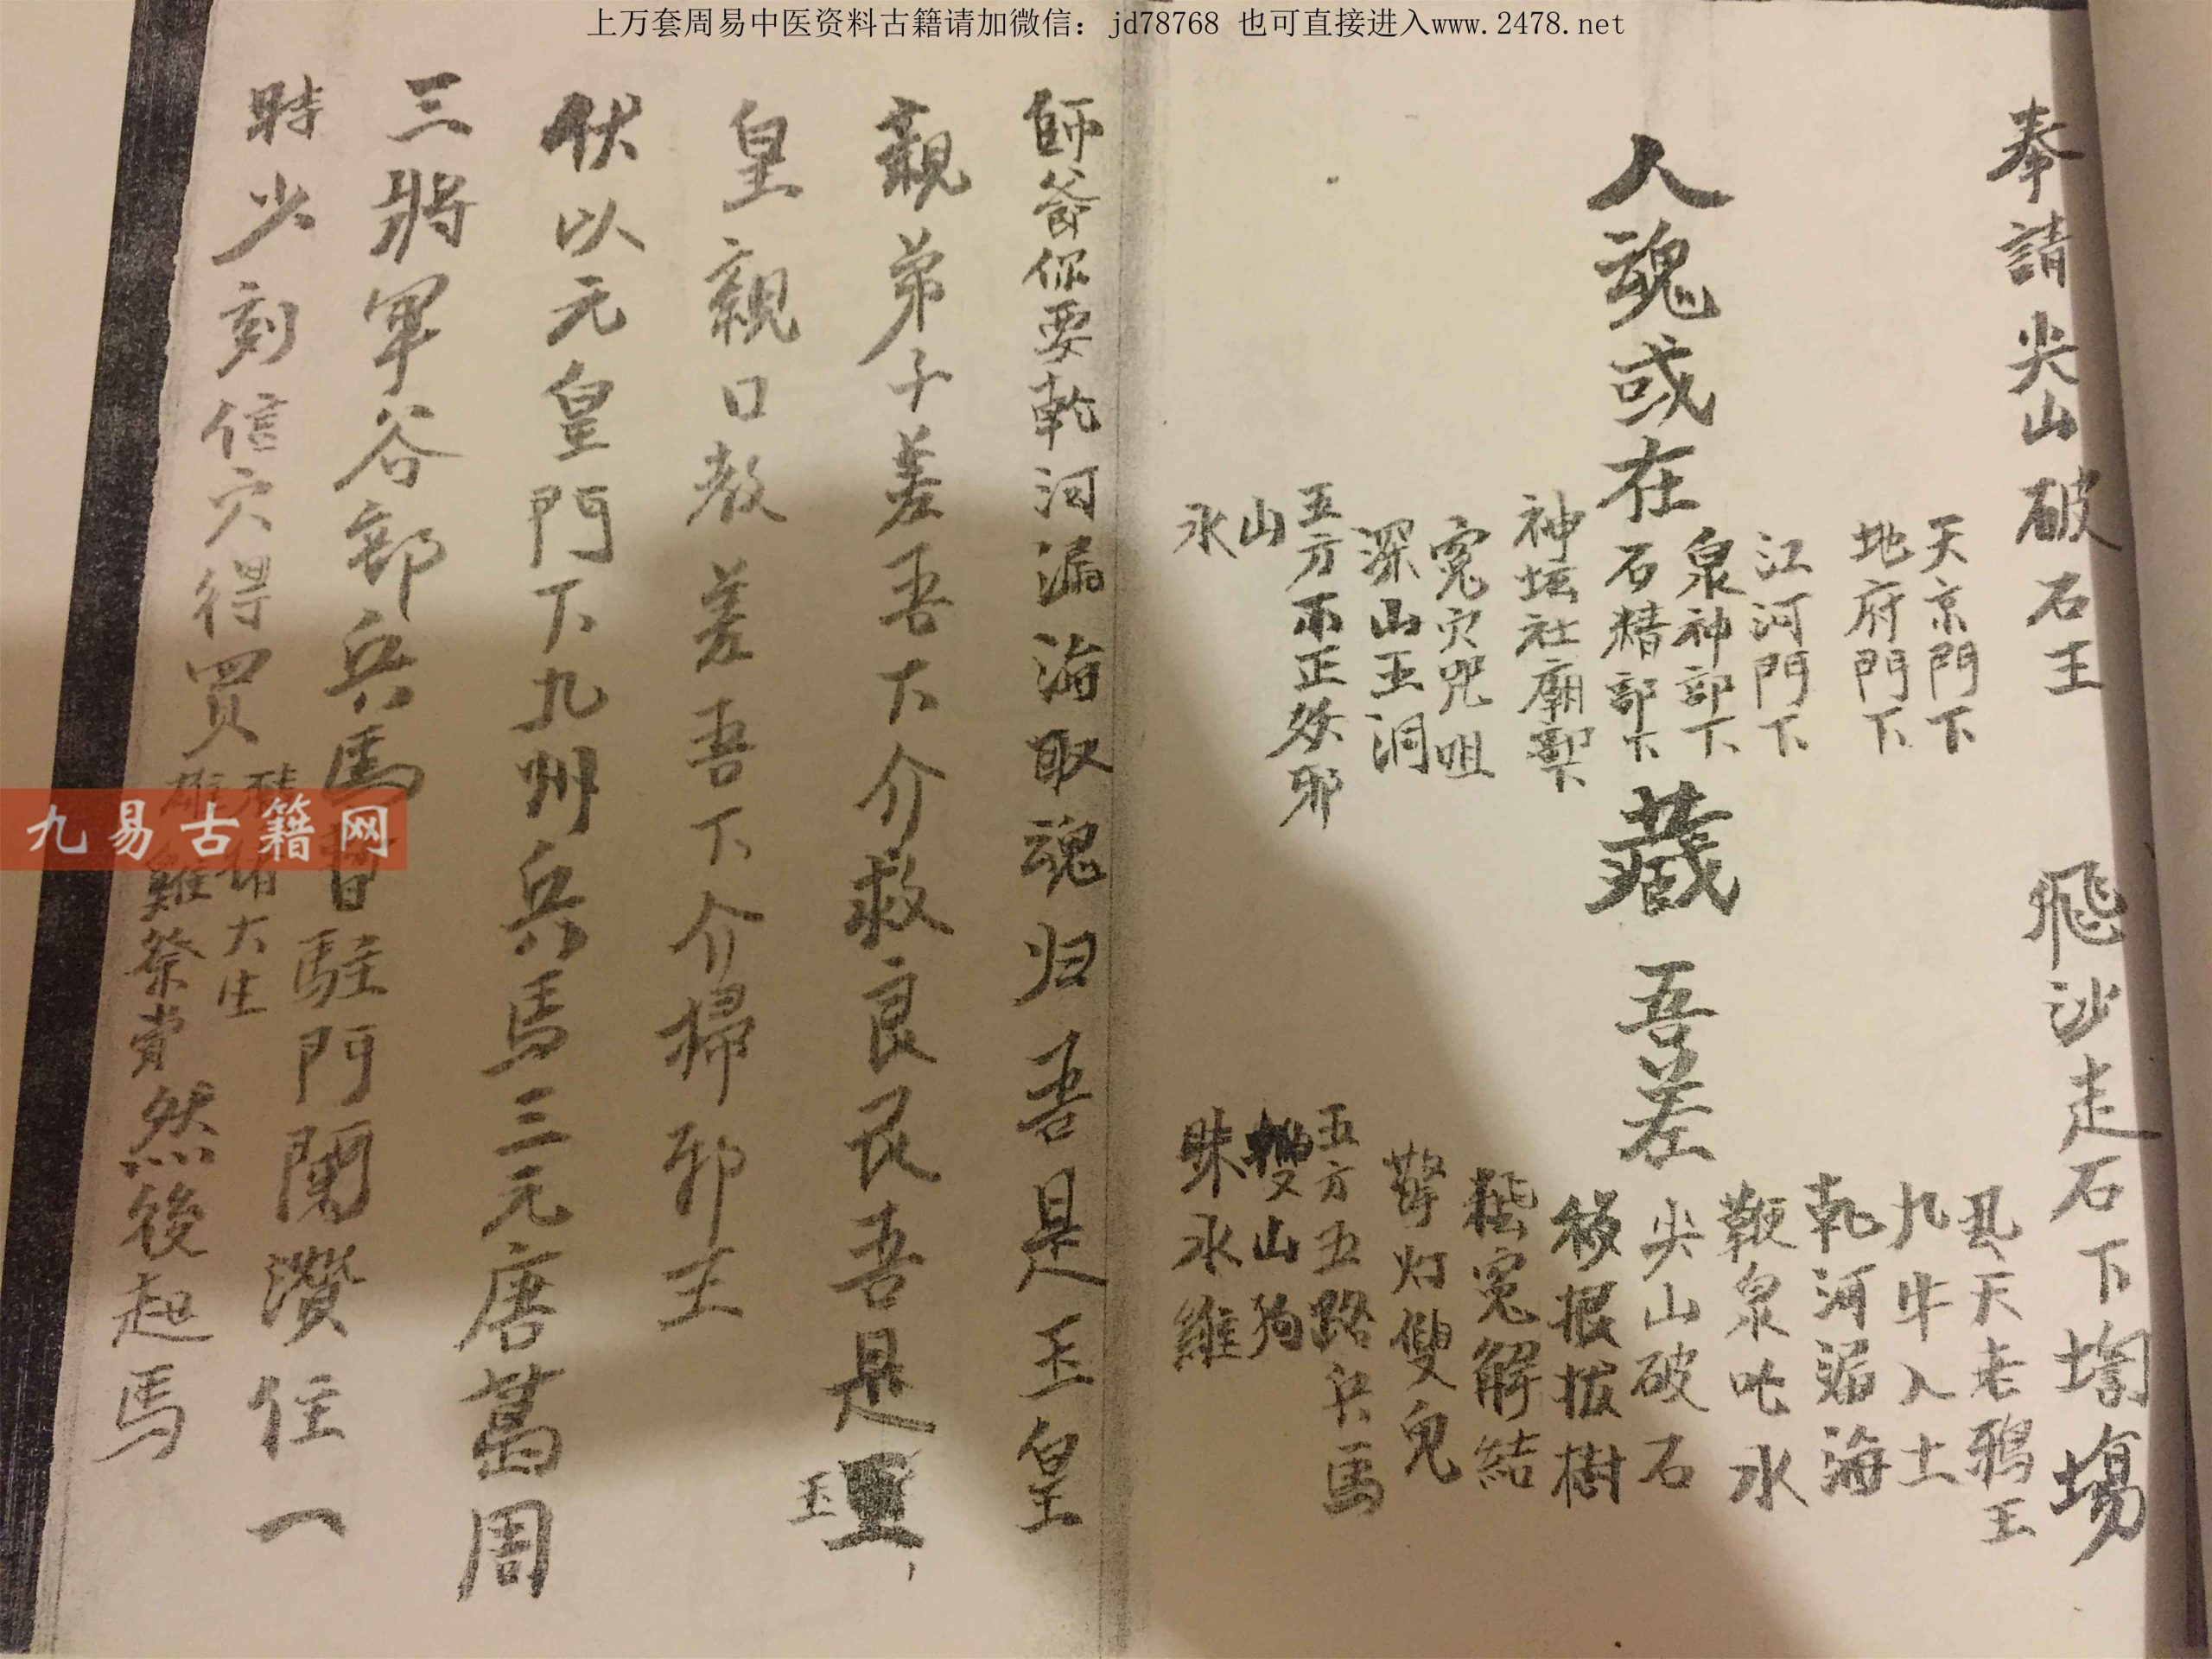 上万套周易中医资料古籍请加微信：jd78768 也可直接进入www.2478.net
奉請尖山破石王 飛沙走石下塌
人魂或在
天京門下
地府門下
江河門下
泉神部下
石精部下
神坛社廟部下
冤穴咒咀
深山玉洞
五方不正妖邪
山
水
藏 吾差
丑天老鴉王
九牛入土
乾河漏海
鞭泉吐水
尖山破石
移根拔樹
冤解結
灯雙鬼
五方五路兵馬
雙山狗
水
師爺你要乾河漏海取魂归吾是玉皇
親弟子差吾下介救良民吾是玉
皇親口教差吾下介掃邪王
伏以元皇門下九州兵馬三元唐葛周
三將軍谷部兵馬暫駐門闌住一
時少刻信穴得買
豬大生
雄雞祭賣
然後起馬
九易古籍网